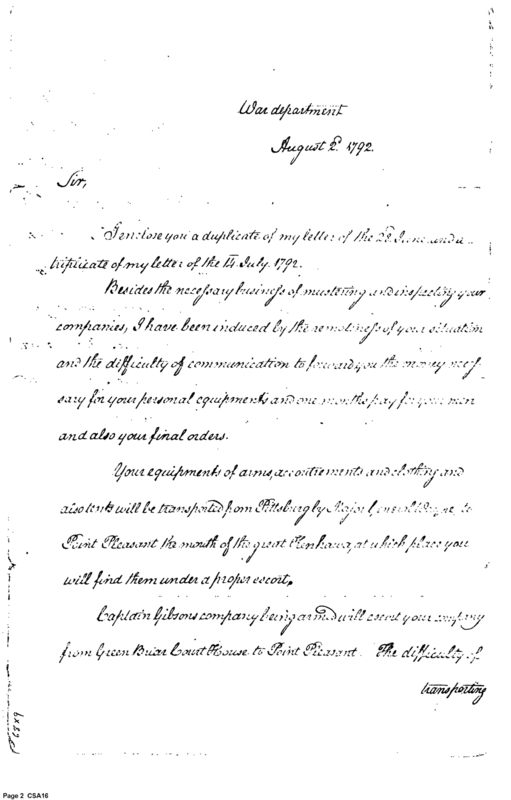 War department
August 2d. 1792.
Sir,
I enclose you a duplicate of my letter of the 22d. June and a
triplicate of my letter of the 14 July. 1792.
Besides the necessary business of mustering and inspecting your
companies, I have been induced by the remoteness of your situation
and the difficulty of communication to forward you the money neces-
sary for your personal equipments and one months pay for your men
and also your final orders.
Your equipments of arms, accoutrements and clothing and
also tents will be transported from Pittsburg by Major General Wayne, to
Point Pleasant the mouth of the great Kenhawa, at which place you
will find them under a proper escort.
Captain Gibsons company being armed will escort your company
from Green Briar Court House to Point Pleasant. The difficulty of
transporting
Page 2 CSA16